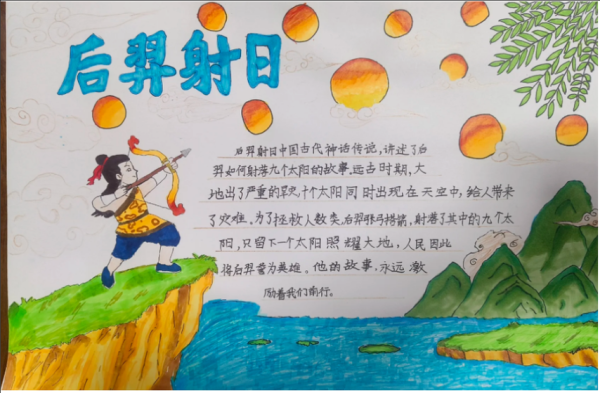 后羿射日
后羿射日中国古代神话传说,讲述了后
羿如何射落九个太阳的故事,远古时期,大
地出了严重的旱灾,十个太阳同时出现在天空中,给人带来
了灾难。为了拯救人类,后羿弯弓搭箭,射落了其中的九个太
阳,只留下一个太阳照耀大地,人民因此
将后羿誉为英雄。他的故事,永远激
励着我们前行。